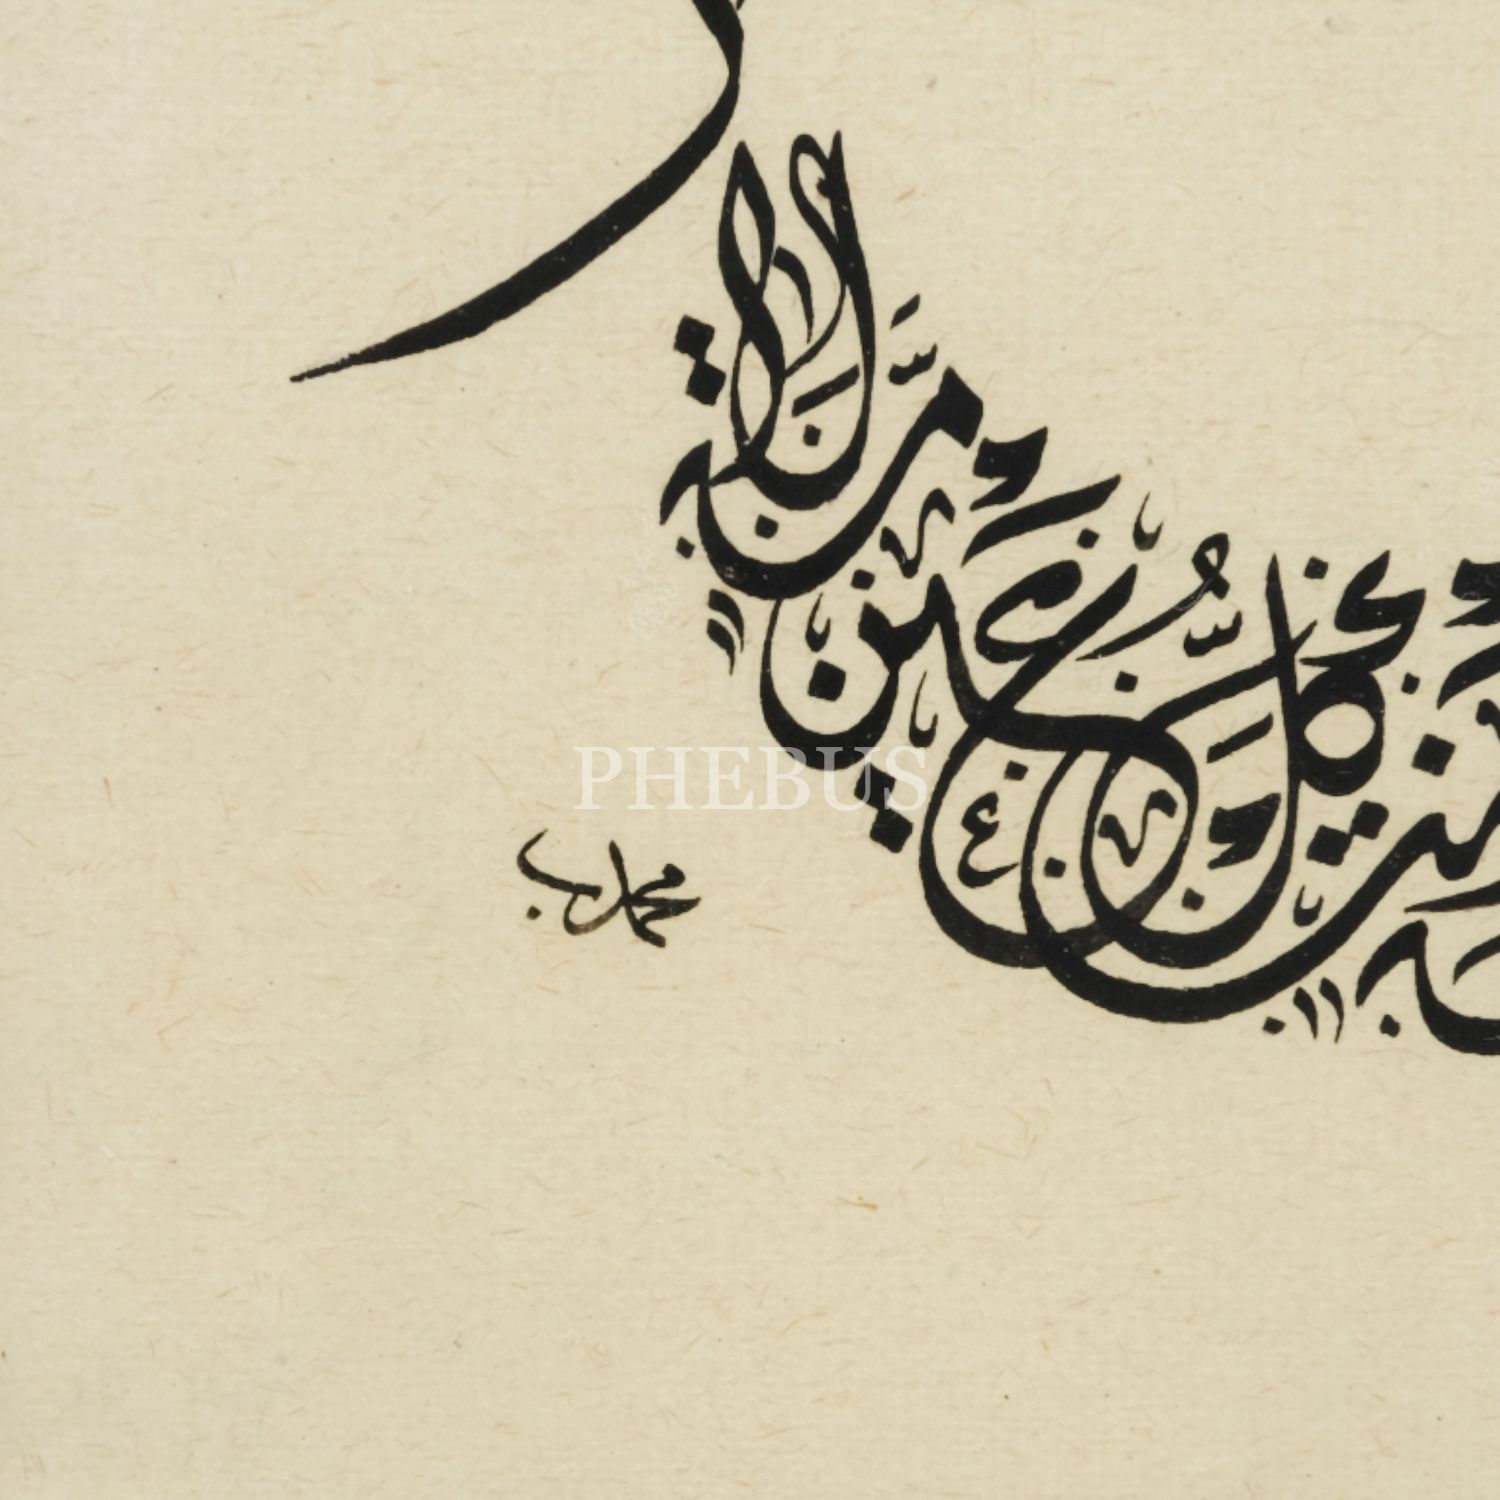 ومن كل عين لامة
PHEBUS
محمد